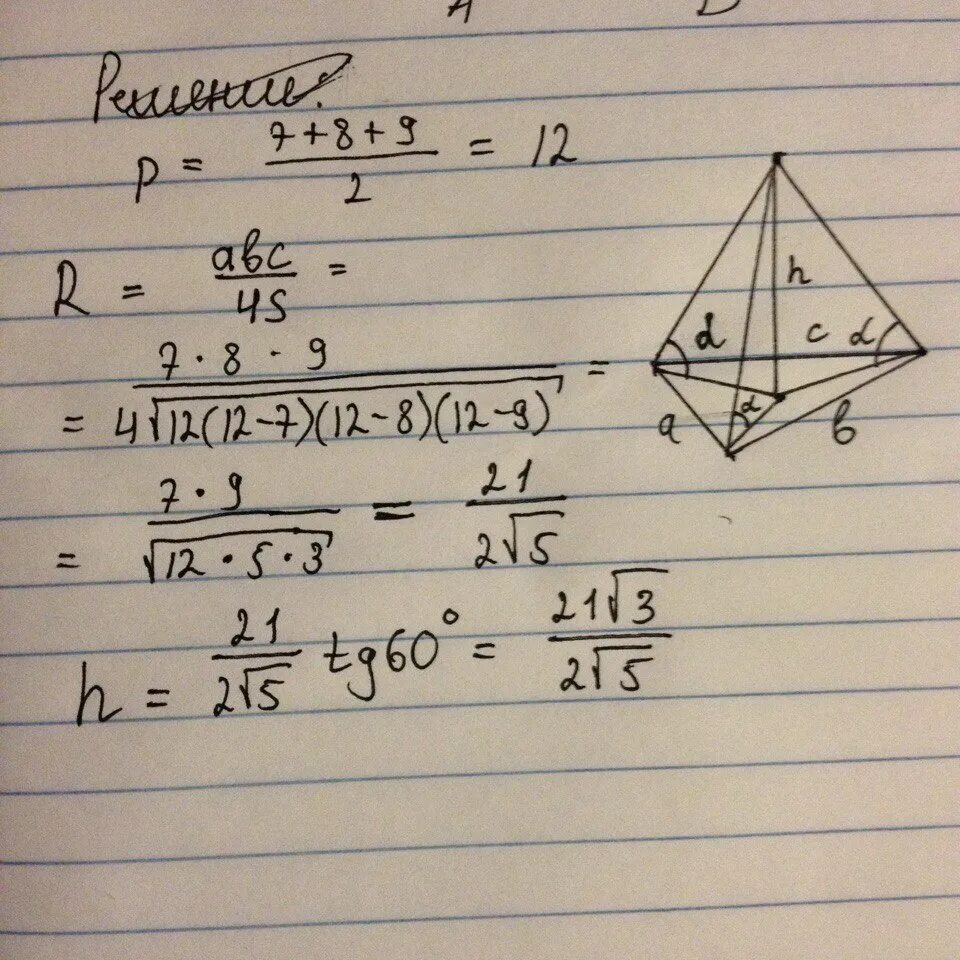 A D
Решение:
p = (7 + 8 + 9)/2 = 12
R = abc/4S =
= (7 · 8 · 9)/(4√(12(12-7)(12-8)(12-9))) =
= (7 · 9)/√(12 · 5 · 3) = 21/(2√5)
h = 21/(2√5) tg60° = 21√3/(2√5)
h
α c α
a α b